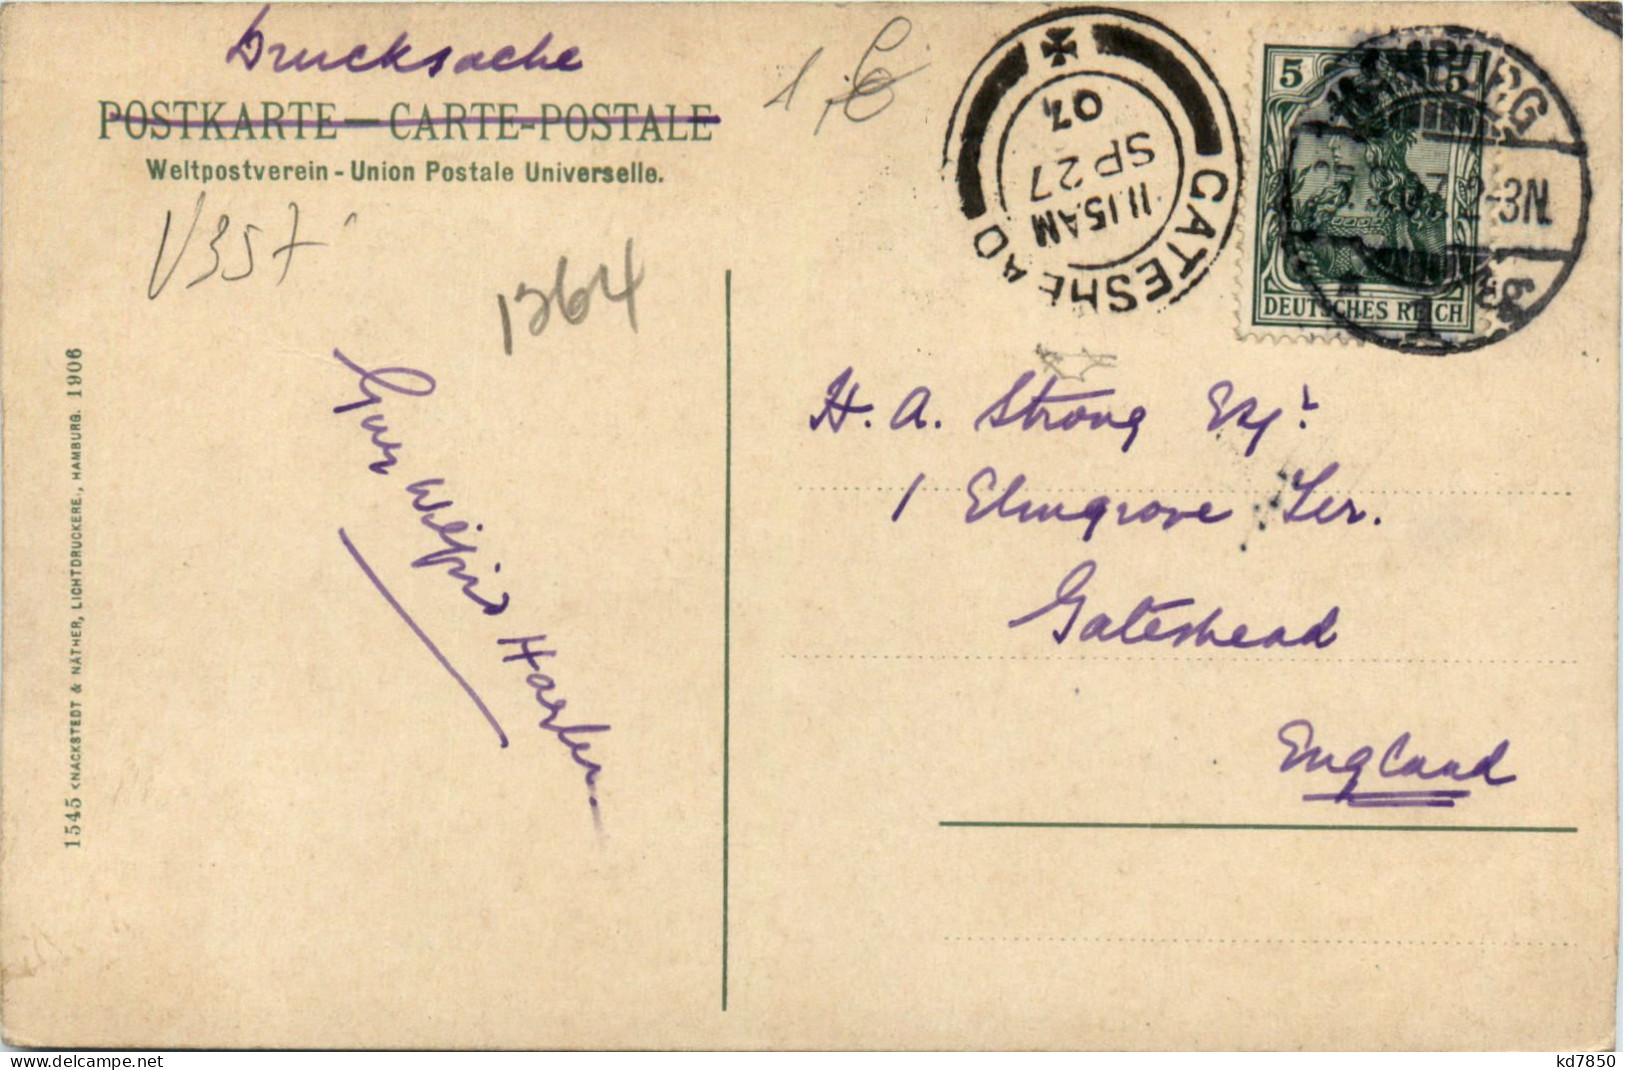 Drucksache
POSTKARTE — CARTE-POSTALE
Weltpostverein - Union Postale Universelle.
1 €
V357
1264
GATESHEAD
11.15AM
SP 27
07
5 5
DEUTSCHES REICH
HAMBURG
25.9.07. 2-3N
1
H. A. Strong Esqr.
1 Elmgrove Ter.
Gateshead
England
Wilfrid
1545 KNACKSTEDT & NÄTHER, LICHTDRUCKEREI, HAMBURG. 1906
www.delcampe.net
kd7850